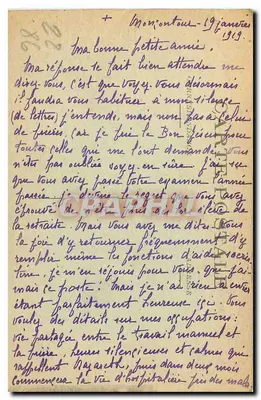 +
Moncontour - 19 janvier
1919.
Ma bonne petite amie,
Ma réponse se fait bien attendre me
direz-vous, c'est que voyez-vous désormais
il faudra vous habituer à mon silence
de lettres j'entends, mais non pas à celui
de prières, car je prie le Bon Jésus pour
toutes celles que me l'ont demandé. Vous
n'êtes pas oubliée soyez-en sûre. J'ai su
que vous aviez passé votre examen l'année
passée, je
éprouvé
la retraite. Mais vous avez me dites-vous
la joie d'y retourner fréquemment d'y
remplir même la fonction d'aide
je m'en réjouis pour vous, que j'ai-
mais ce poste! Mais je n'ai rien à envier
étant parfaitement heureuse ici. Vous
voulez des détails sur mes occupations:
vie partagée entre le travail manuel et
la prière, heures silencieuses et calmes qui
rappellent Nazareth, puis dans deux mois
commencera la vie d'hospitalière près des malades